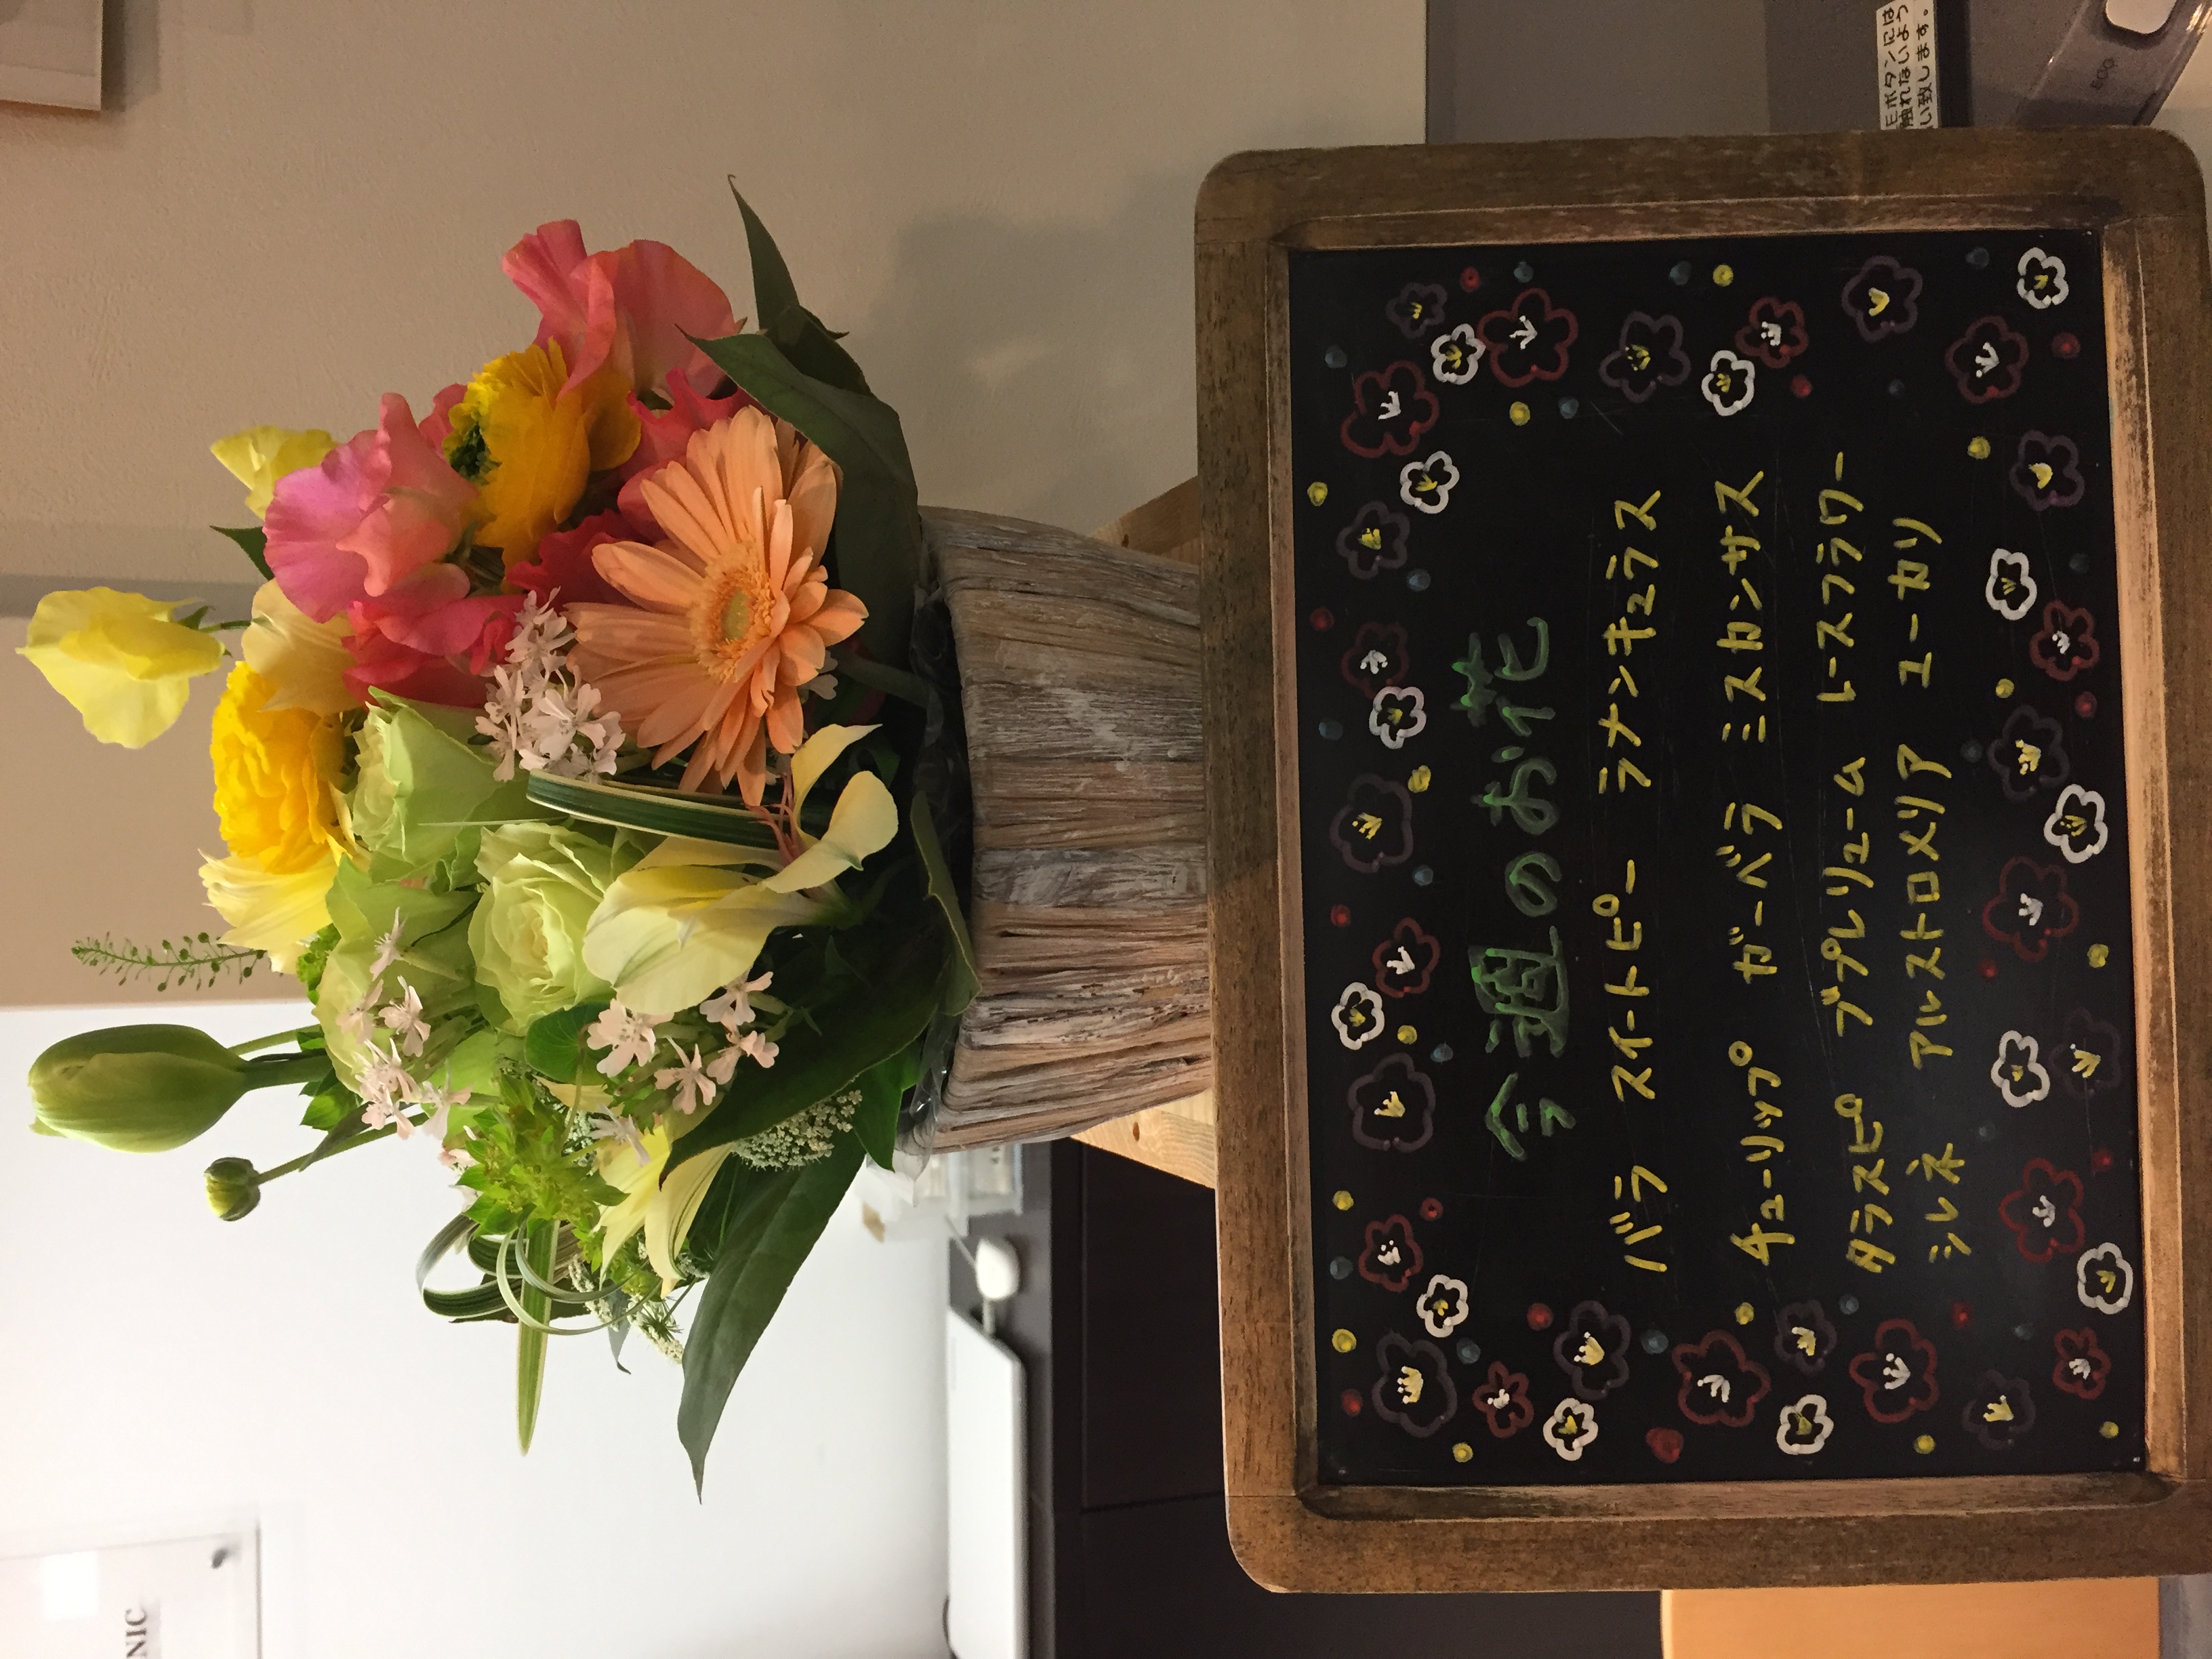 今週のお花
バラ スイートピー ラナンキュラス
チューリップ ガーベラ ミスカンサス
タラスピ ブプレリューム レースフラワー
シレネ アルストロメリア ユーカリ
Eボタンには
触れないよう
い致します。
ECO
NIC